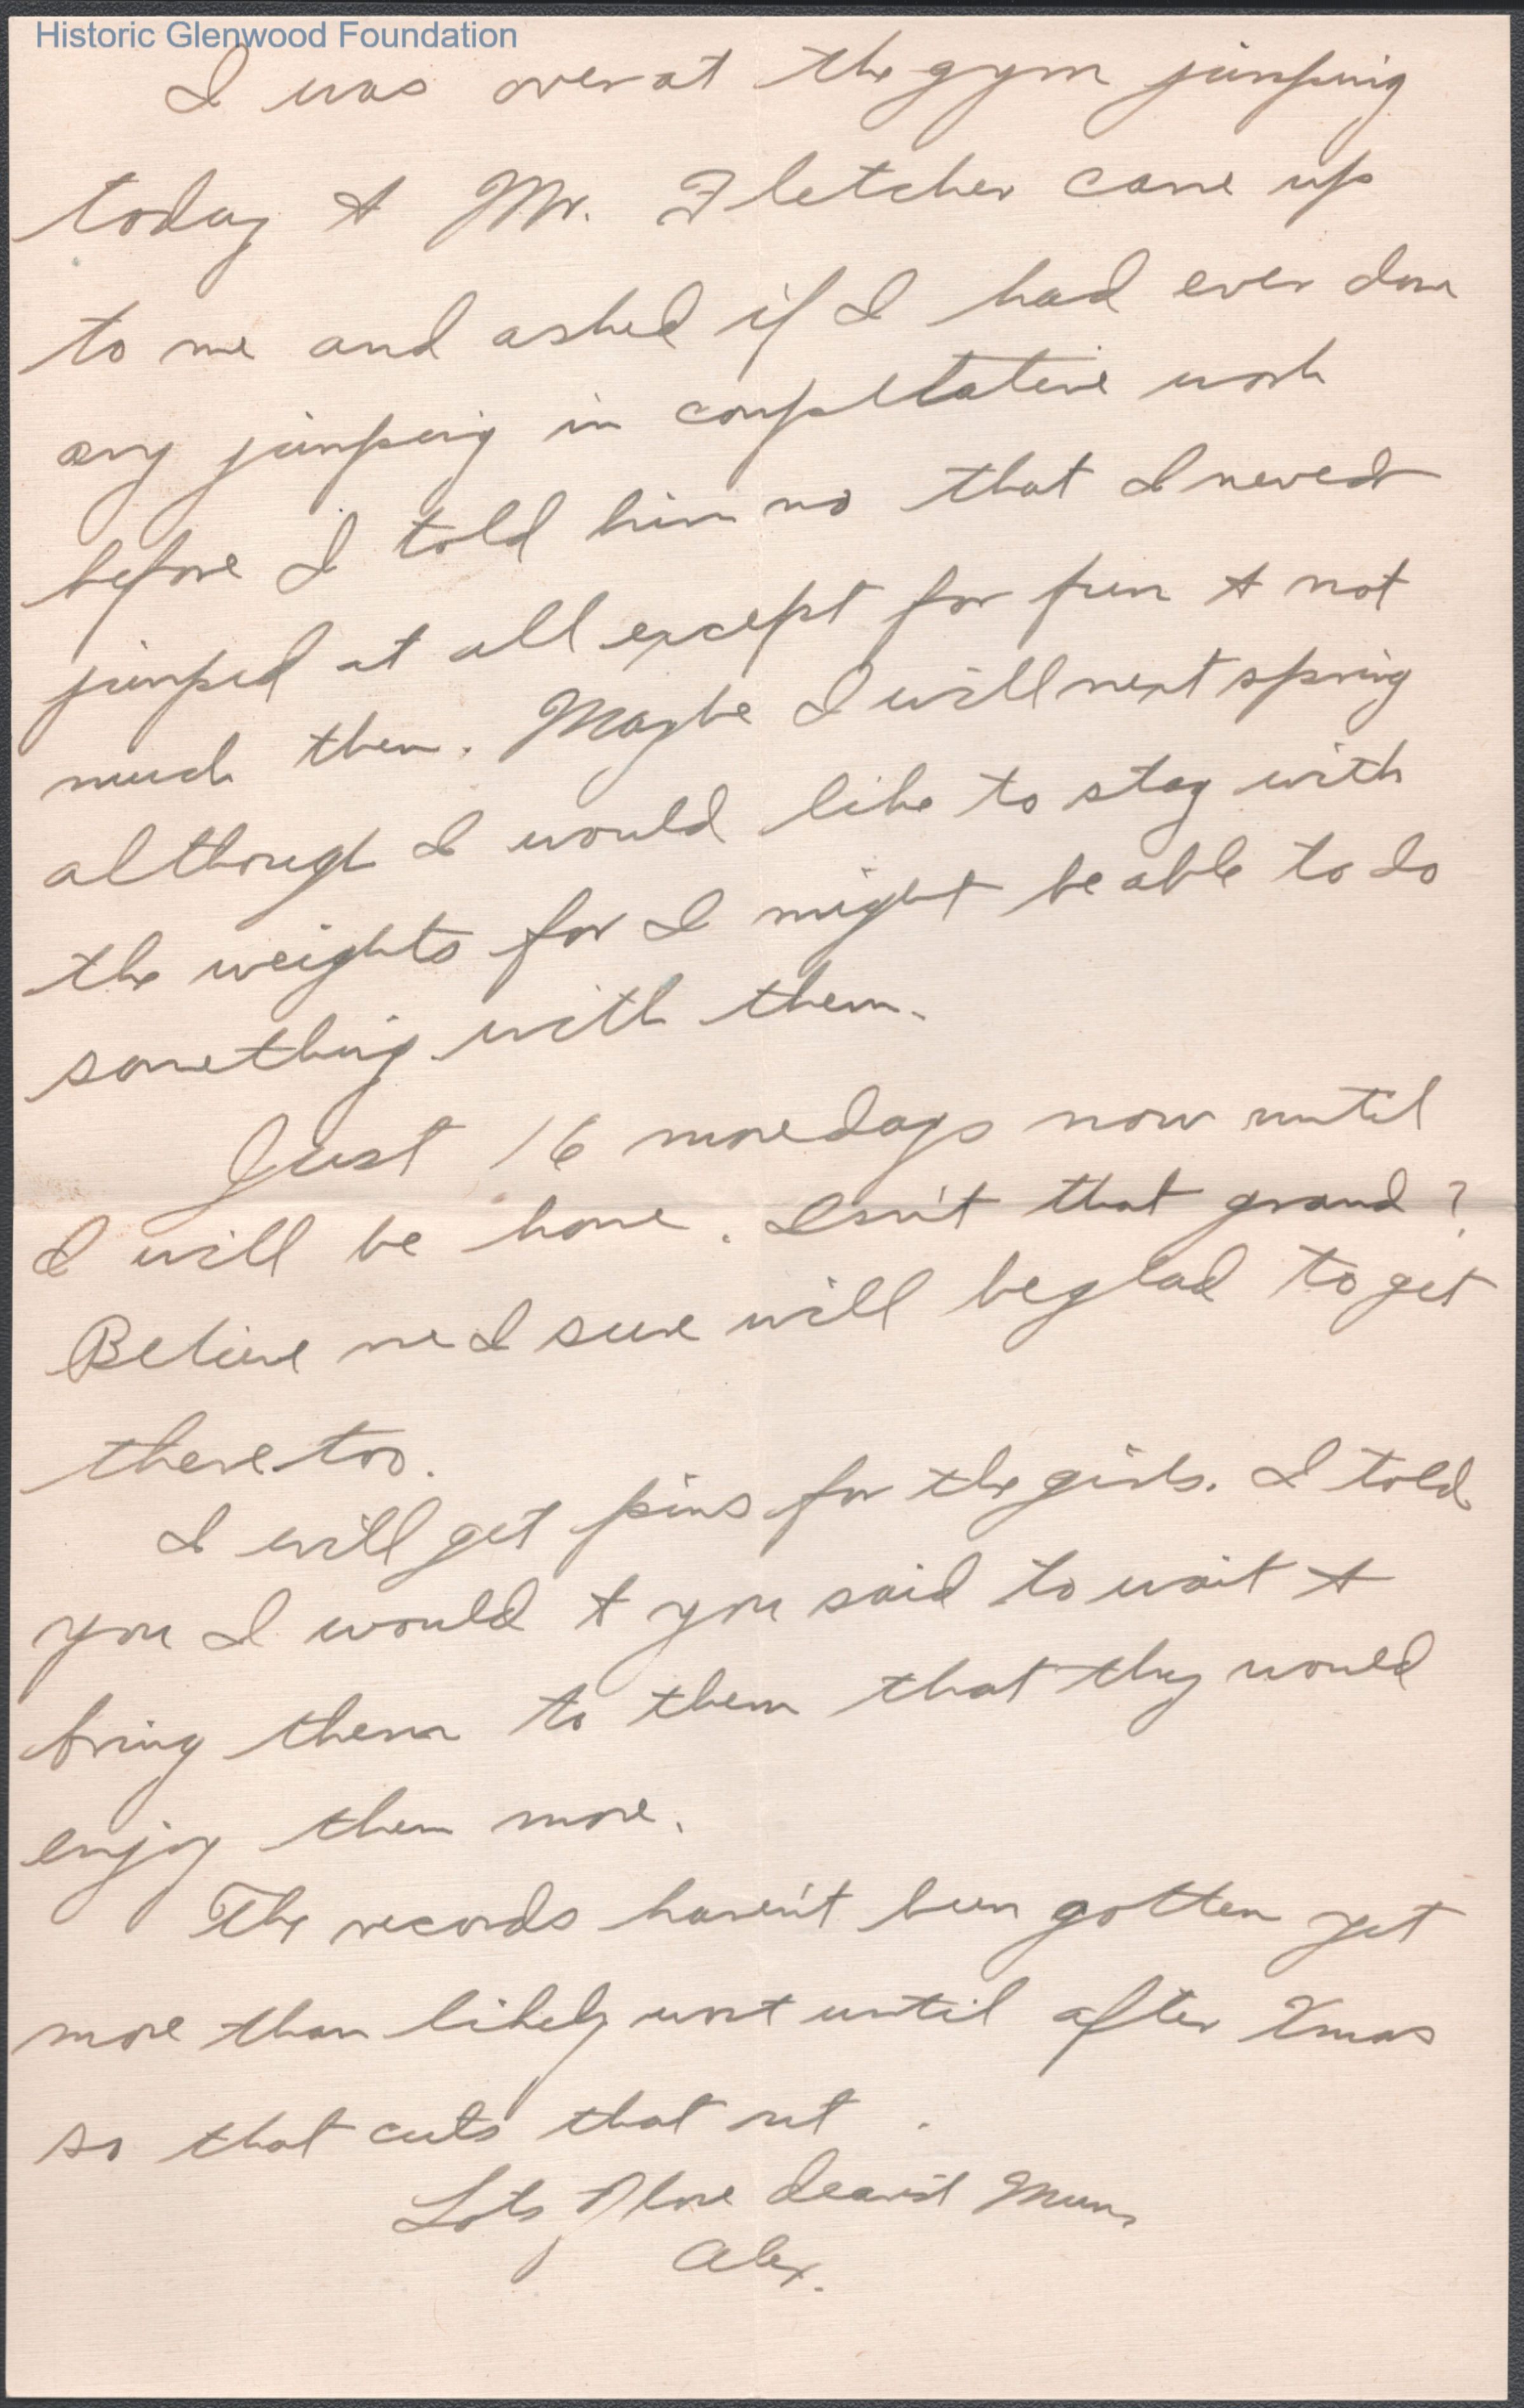 Historic Glenwood Foundation
I was over at the gym jumping
today & Mr. Fletcher came up
to me and asked if I had ever done
any jumping in compltative work
before I told him no that I never
jumped at all except for fun & not
much then. Maybe I will next spring
although I would like to stay with
the weights for I might be able to do
something with them.
Just 16 more days now until
I will be home. Isn't that grand?
Believe me I sure will be glad to get
there too.
I will get pins for the girls. I told
you I would & you said to wait &
bring them to them that they would
enjoy them more.
The records haven't been gotten yet
more than likely wont until after Xmas
so that cuts that out.
Lots of love dearest Mum,
Alex.